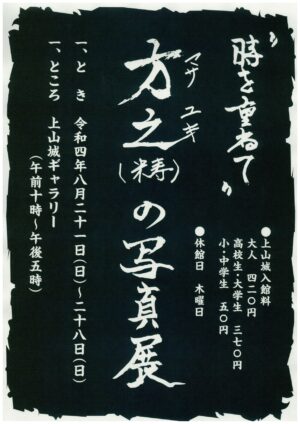 〝時を重ねて〟
マサ ユキ
方之(祷)の写真展
一、とき 令和四年八月二十一日(日)～二十八日(日)
一、ところ 上山城ギャラリー
(午前十時～午後五時)
●上山城入館料
大人 四二〇円
高校生・大学生 三七〇円
小・中学生 五〇円
●休館日 木曜日